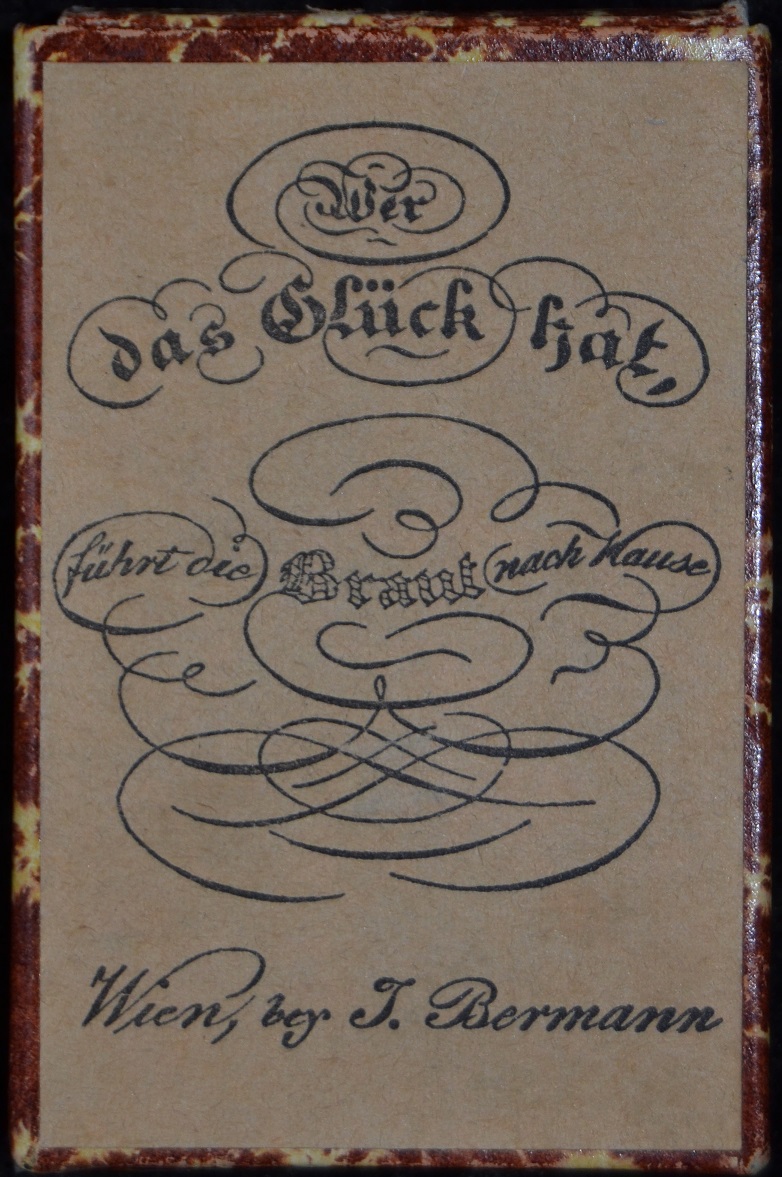 Wer
das Glück hat,
führt die Braut nach Hause
Wien, bey J. Bermann